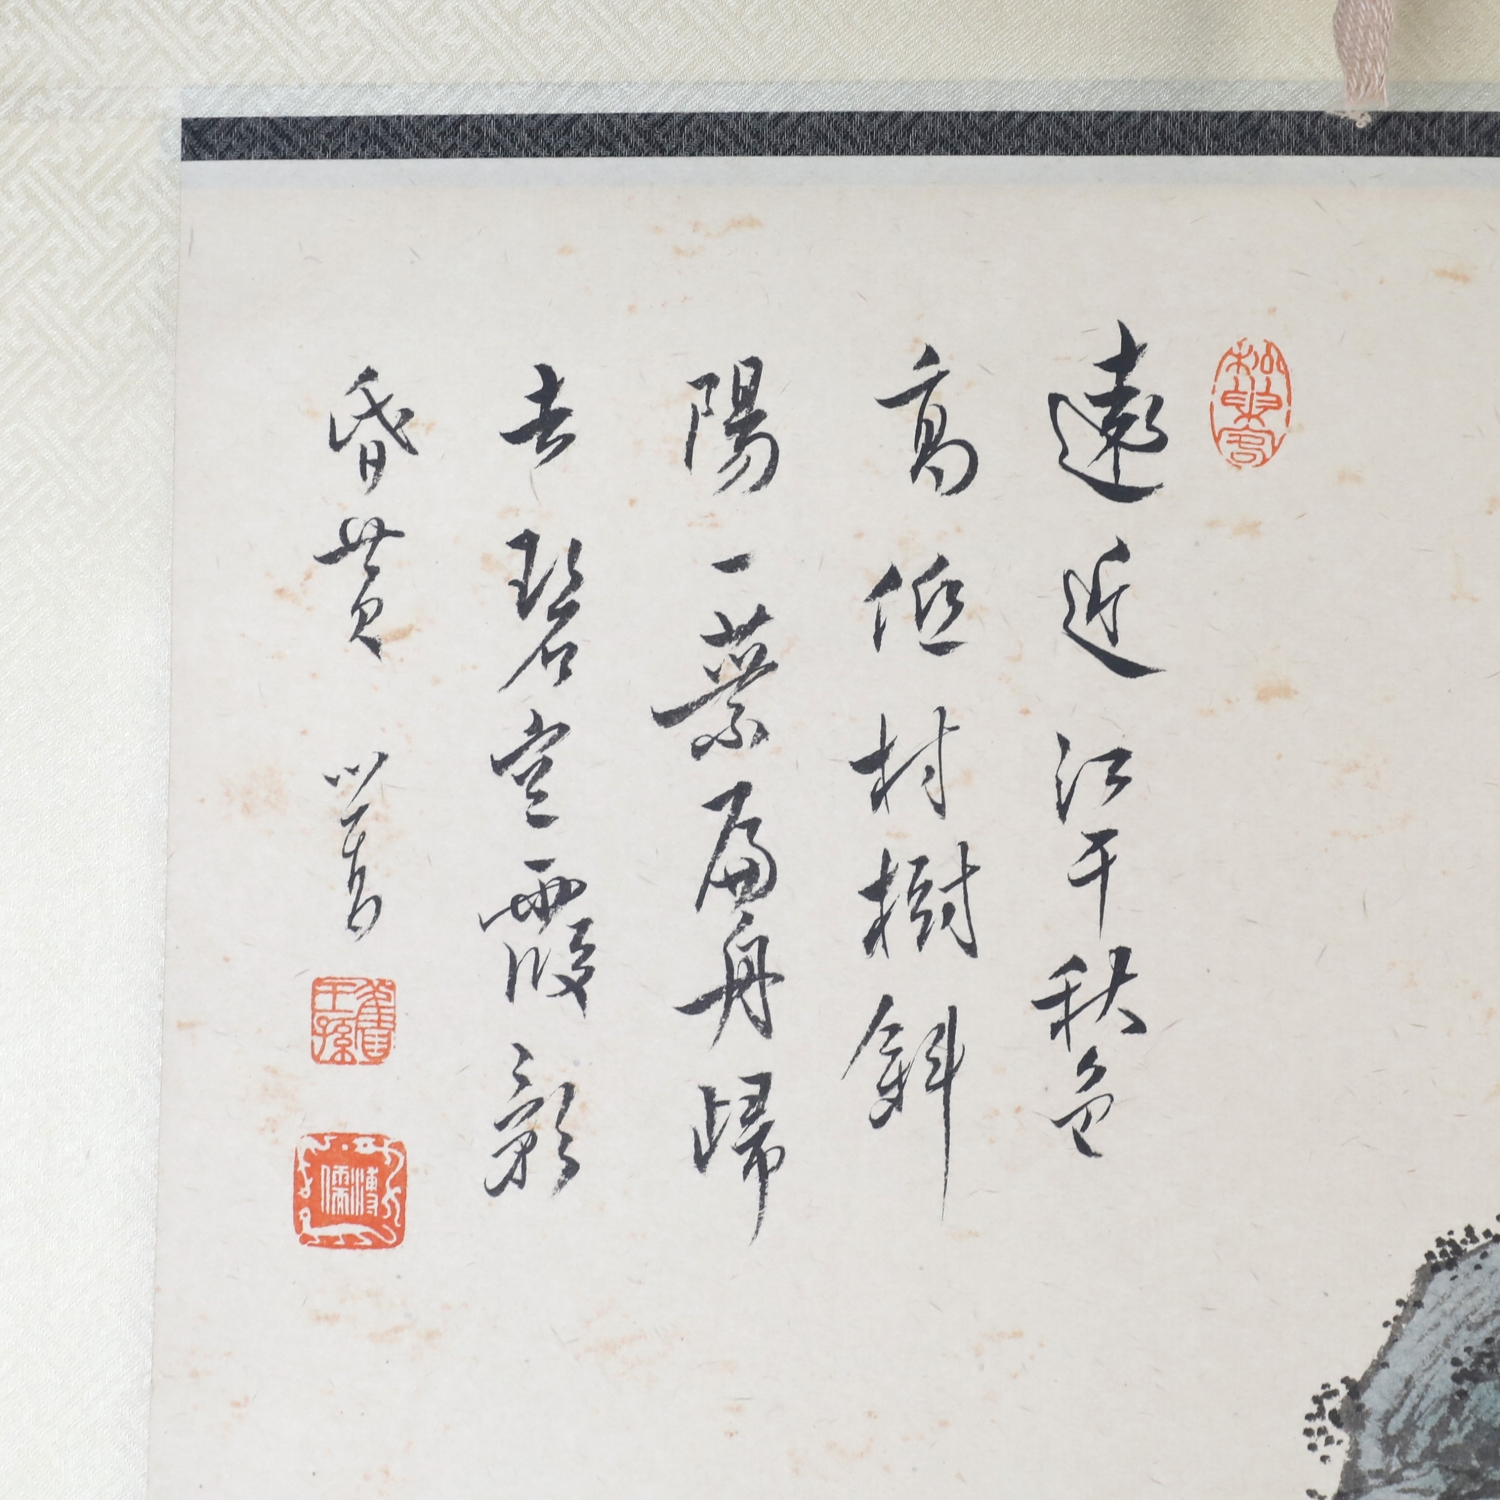 松巢客
遠近江干秋色
高低村樹斜
陽一葉扁舟歸
去碧空霞影
昏黃
溥儒
舊王孫
溥儒